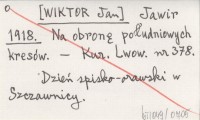 [WIKTOR Jan] Jawir
1918. Na obronę południowych
kresów. — Kur. Lwow. nr 378.
Dzień spisko-orawski w
Szczawnicy.